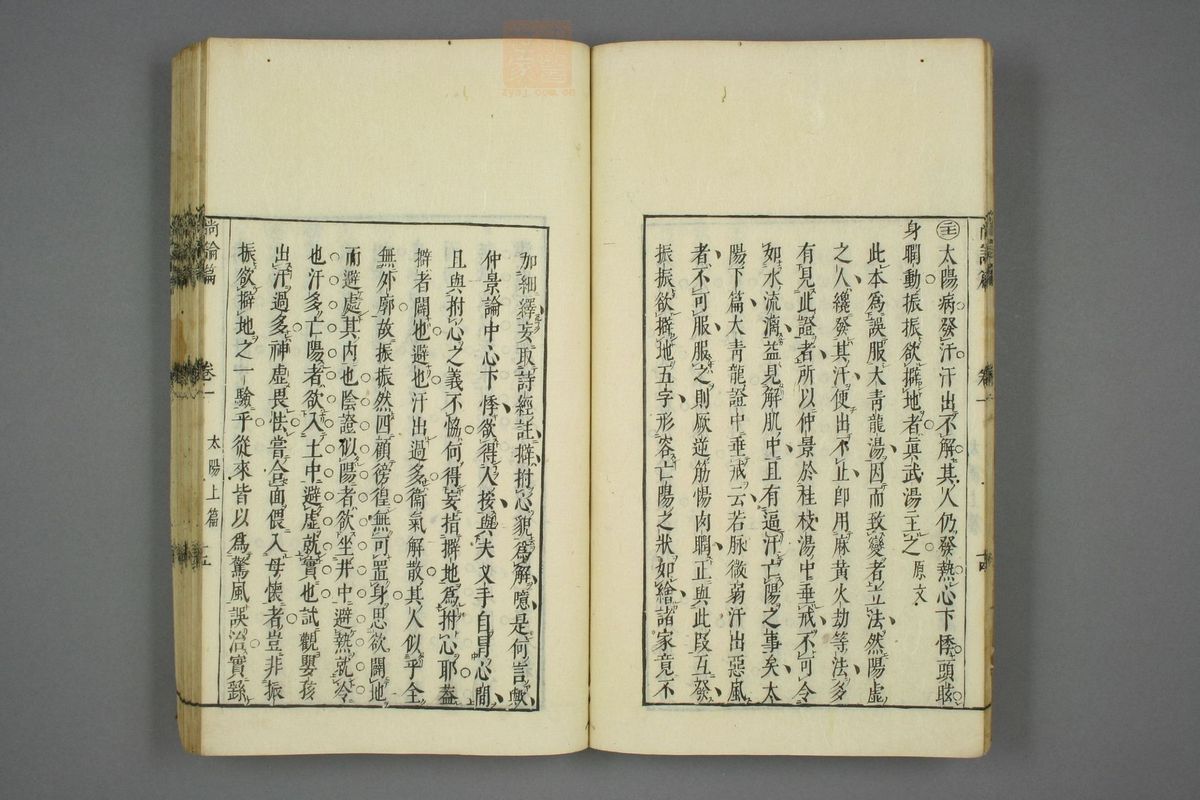 太陽病發汗汗出不解其人仍發熱心下悸頭眩
身瞤動振振欲擗地者眞武湯主之 原文
此本爲誤服大青龍湯因而致變者立法然陽虛
之人纔發其汗便出不止卽用麻黄火劫等法多
有見此證者所以仲景於桂枝湯中垂戒不可令
如水流漓益見解肌中且有逼汗亡陽之事矣太
陽下篇大青龍證中垂戒云若脉微弱汗出惡風
者不可服服之則厥逆筋惕肉瞤正與此段互發
振振欲擗地五字形容亡陽之狀如繪諸家竟不
加細繹妄取詩經註擗拊心貌爲解噫是何言歟
仲景論中心下悸欲得入按與夫叉手自冒心間
且與拊心之義不恊何得妄指擗地爲拊心耶蓋
擗者闢也避也汗出過多衞氣解散其人似乎全
無外廓故振振然四顧徬徨無可置身思欲闢地
而避處其内也陰證似陽者欲坐井中避熱就冷
也汗多亡陽者欲入土中避虛就實也試觀嬰孩
出汗過多神虛畏怯嘗合面偎入母懷者豈非振
振欲擗地之一驗乎從來皆以爲驚風誤治實繇
尚論篇 卷一 太陽上篇 十五